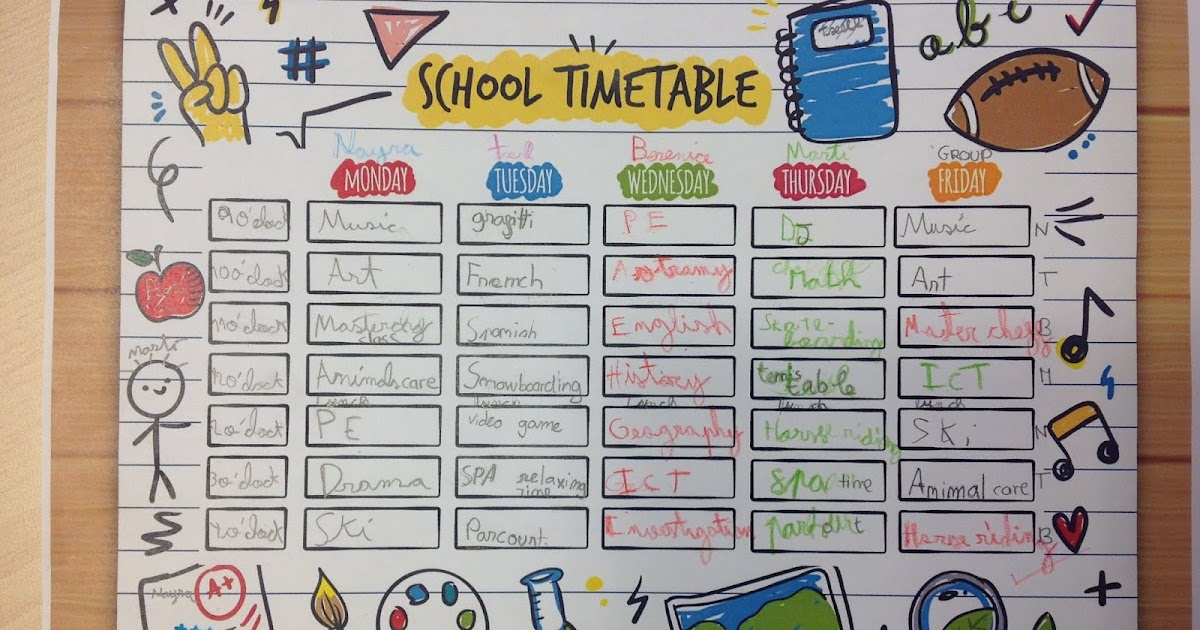 abc
SCHOOL TIMETABLE
Nayra Berenice Martí GROUP
MONDAY TUESDAY WEDNESDAY THURSDAY FRIDAY
9o'clock Music gragitti PE DJ Music N
10o'clock Art French Math Art T
11o'clock Masterchef class Spanish English Skate-boarding Master cheff B
Martí
12o'clock Animalscare Snowboarding History tennis table ICT H
Lunch Lunch Lunch Lunch Lunch
2o'clock PE video game Geography Horse riding Ski N
3o'clock Drama SPA relaxing time ICT spa time Animal care T
4o'clock Ski Parcourt Investigation parcourt Horse riding B
Nayra A+